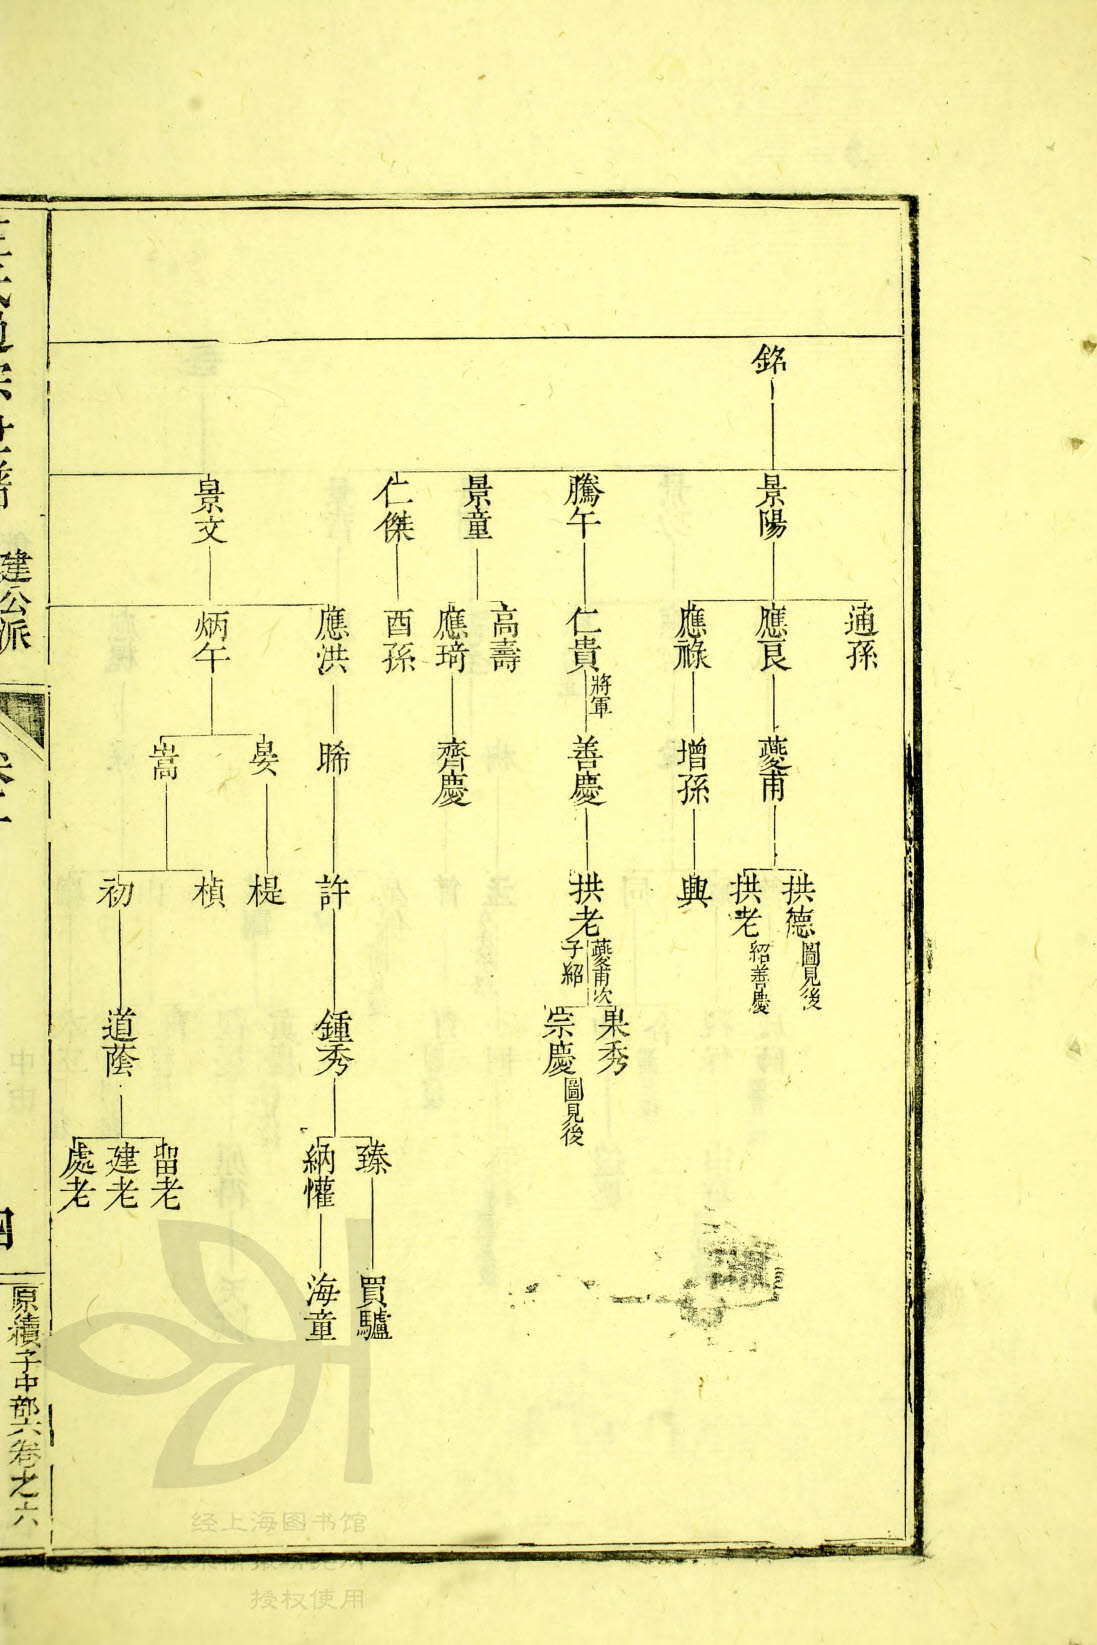 銘
景陽
騰午
景童
仁傑
景文
通孫
應良
應祿
仁貴 將軍
高壽
應琦
酉孫
應洪
炳午
夔甫
增孫
善慶
齊慶
晞
晏
嵩
拱德 圖見後
拱老 紹善慶
興
拱老 夔甫次子紹
許
禔
楨
初
果秀
宗慶 圖見後
鍾秀
道蔭
臻
納懽
留老
建老
處老
買驢
海童
通宗世譜
建公派
四
原續子中部六卷之六
经上海图书馆
授权使用